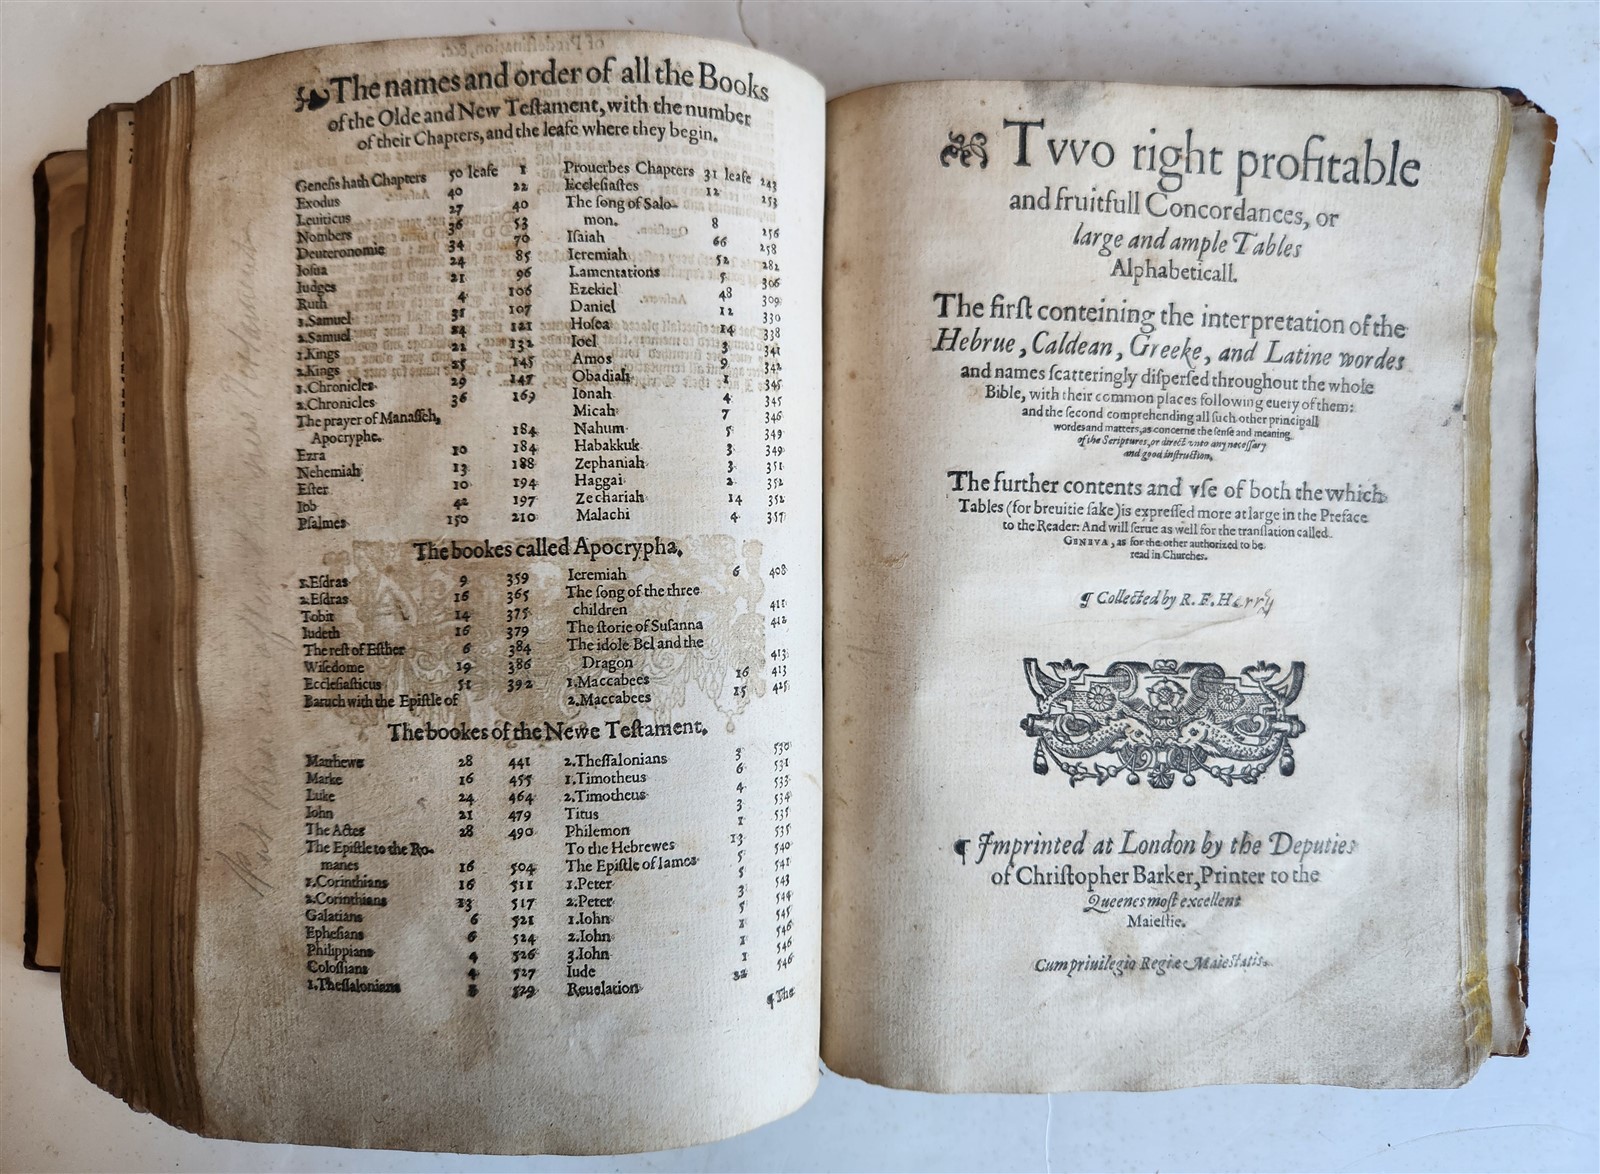 The names and order of all the Books
of the Olde and New Teſtament, with the number
of their Chapters, and the leafe where they begin.
Geneſis hath Chapters 50 leafe 1
Exodus 40 22
Leuiticus 27 40
Nombers 36 53
Deuteronomie 34 70
Ioſua 24 85
Iudges 21 96
Ruth 4 106
1.Samuel 31 107
2.Samuel 24 121
1.Kings 22 132
2.Kings 25 145
1.Chronicles 29 147
2.Chronicles 36 169
The prayer of Manaſſeh,
Apocryphe. 184
Ezra 10 184
Nehemiah 13 188
Eſter 10 194
Iob 42 197
Pſalmes 150 210
Prouerbes Chapters 31 leafe 243
Eccleſiaſtes 12 253
The ſong of Salo-
mon. 8 256
Iſaiah 66 258
Ieremiah 52 282
Lamentations 5 306
Ezekiel 48 309
Daniel 12 330
Hoſea 14 338
Ioel 3 341
Amos 9 342
Obadiah 1 345
Ionah 4 345
Micah 7 346
Nahum 3 349
Habakkuk 3 349
Zephaniah 3 351
Haggai 2 352
Zechariah 14 352
Malachi 4 357
The bookes called Apocrypha.
1.Eſdras 9 359
2.Eſdras 16 365
Tobit 14 375
Iudeth 16 379
The reſt of Eſther 6 384
Wiſedome 19 386
Eccleſiaſticus 51 392
Baruch with the Epiſtle of
Ieremiah 6 408
The ſong of the three
children 411
The ſtorie of Suſanna 412
The idole Bel and the
Dragon 413
1.Maccabees 16 413
2.Maccabees 15 425
The bookes of the Newe Teſtament.
Matthewe 28 441
Marke 16 455
Luke 24 464
Iohn 21 479
The Actes 28 490
The Epiſtle to the Ro-
manes 16 504
1.Corinthians 16 511
2.Corinthians 13 517
Galatians 6 521
Epheſians 6 524
Philippians 4 526
Coloſſians 4 527
1.Theſſalonians 5 529
2.Theſſalonians 3 530
1.Timotheus 6 531
2.Timotheus 4 533
Titus 3 534
Philemon 1 535
To the Hebrewes 13 535
The Epiſtle of Iames 5 540
1.Peter 5 541
2.Peter 3 543
1.Iohn 5 544
2.Iohn 1 545
3.Iohn 1 546
Iude 1 546
Reuelation 22 546
¶ The
Tvvo right profitable
and fruitfull Concordances, or
large and ample Tables
Alphabeticall.
The firſt conteining the interpretation of the
Hebrue, Caldean, Greeke, and Latine wordes
and names ſcatteringly diſperſed throughout the whole
Bible, with their common places following euery of them:
and the ſecond comprehending all ſuch other principall
wordes and matters, as concerne the ſenſe and meaning
of the Scriptures, or direct vnto any neceſſary
and good inſtruction.
The further contents and vſe of both the which
Tables (for breuitie ſake) is expreſſed more at large in the Preface
to the Reader: And will ſerue as well for the tranſlation called
GENEVA, as for the other authorized to be
read in Churches.
¶ Collected by R. F. Herry
¶ Imprinted at London by the Deputies
of Chriſtopher Barker, Printer to the
Queenes moſt excellent
Maieſtie.
Cum priuilegio Regiæ Maieſtatis.